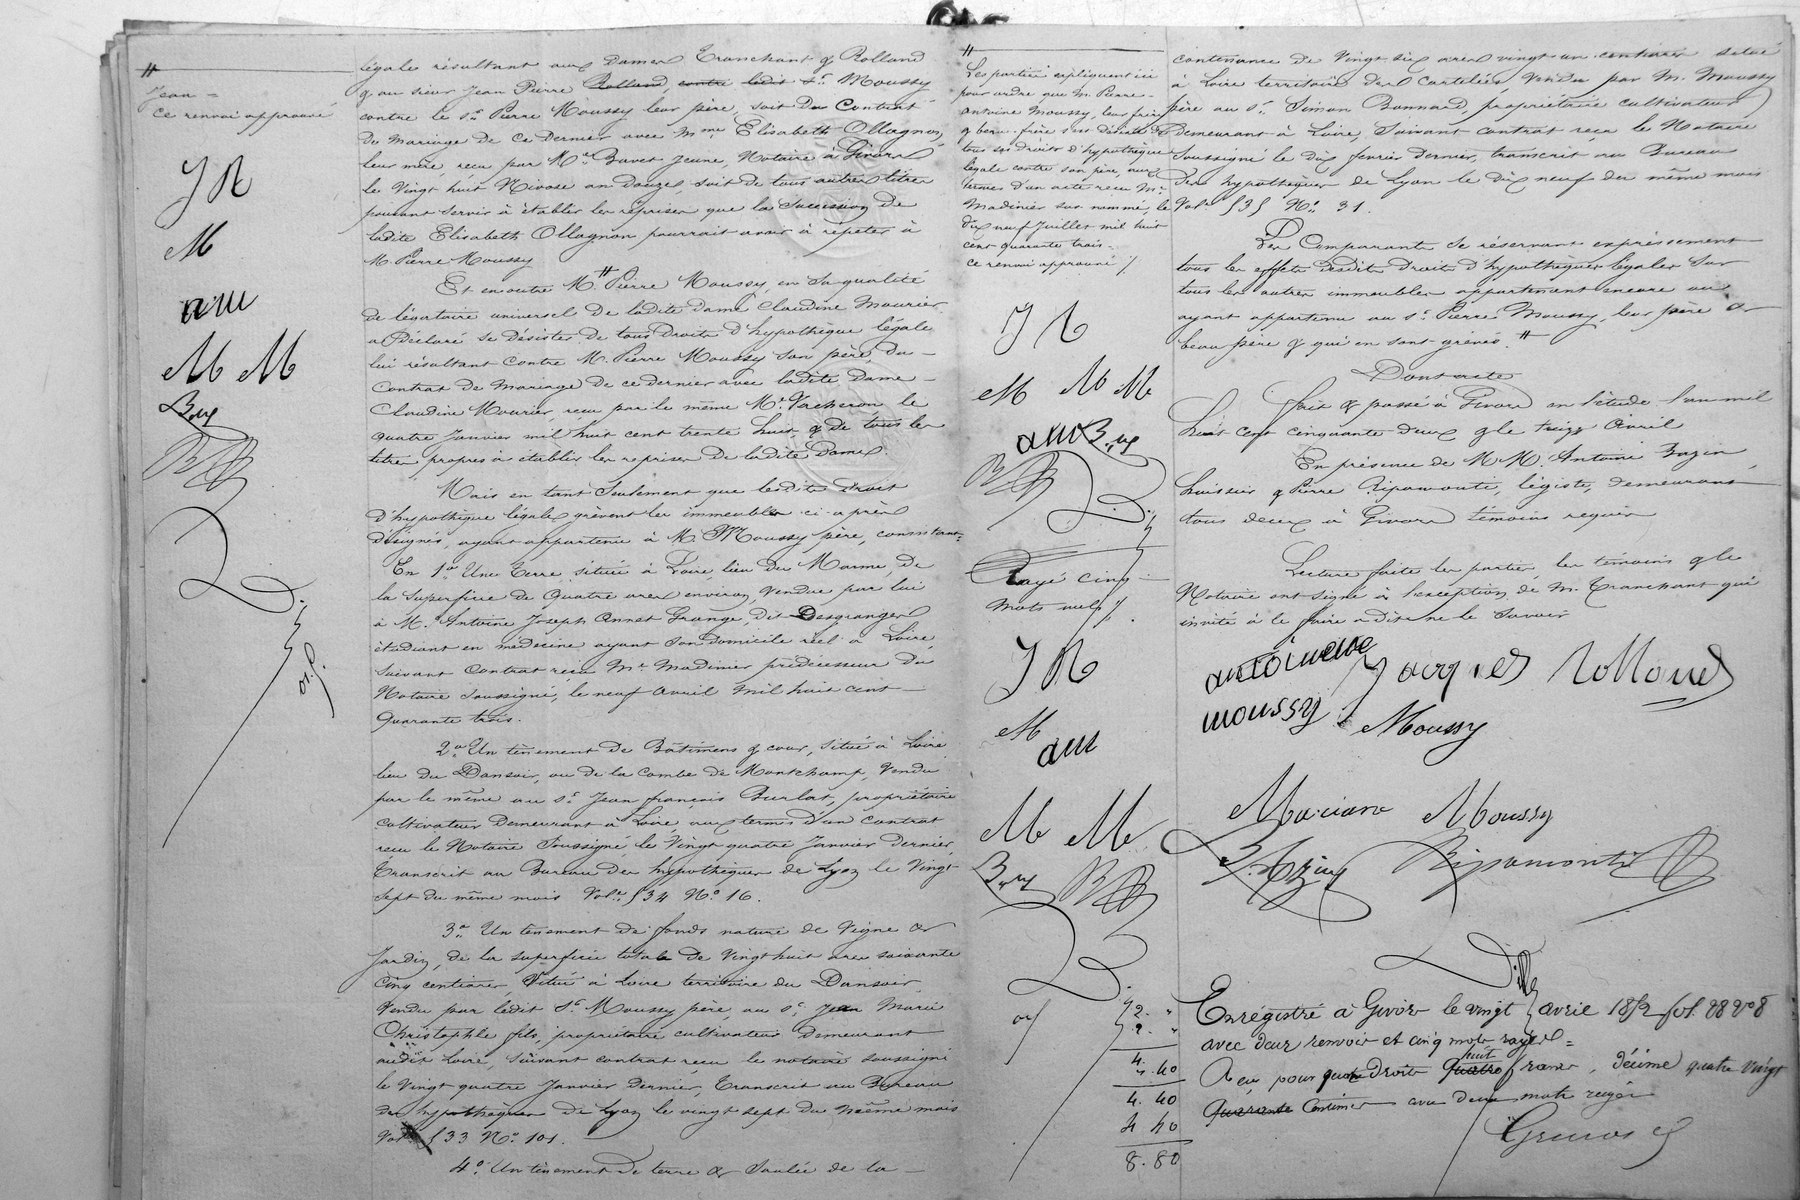 Jean =
ce renvoi approuvé
J R
M
am
M M
légale résultant aux Dames Tranchant & Rolland
& au sieur Jean Pierre Rolland, contre ledit Sr. Moussy
contre le Sr. Pierre Moussy leur père, soit Du Contrat
De Mariage De Ce Dernier avec Mme Elisabeth Ollagnon,
leur mère, reçu par Me. Bavet Jeune, Notaire à Givors
le Vingt huit Nivose an Douze, soit De tous autres titres
pouvant servir à établir les reprises que la Succession De
ladite Elisabeth Ollagnon pourrait avoir à répéter à
M. Pierre Moussy
Et en outre M. Pierre Moussy, en Sa qualité
De légataire universel De ladite Dame Claudine Mourier
a Déclaré se Désister De tous Droits D'hypothèque légale
lui résultant Contre M. Pierre Moussy Son père, Du
Contrat De Mariage De ce dernier avec ladite Dame
Claudine Mourier, reçu par le même Me. Vacheron le
quatre Janvier mil huit cent trente huit & De tous les
titres propres à établir les reprises De ladite Dame.
Mais en tant Seulement que lesdits Droits
D'hypothèque légale grèvent les immeubles ci-après
Désignés, ayant appartenu à M. Moussy père, consistant
En 1o. Une Terre située à Loire, lieu Du Marme, De
la Superficie De Quatre ares environ, Vendue par lui
à M. Antoine Joseph Annet Grange, dit Desgranges
étudiant en médecine ayant Son Domicile réel à Loire,
Suivant Contrat reçu Me. Madinier prédécesseur Du
Notaire Soussigné, le neuf Avril Mil huit cent
Quarante trois.
2o. Un tènement De Bâtimens & cour, Situé à Loire
lieu Du Dansoir, ou De la Combe De Montchamp, Vendu
par le même au Sr. Jean françois Burlat, propriétaire
cultivateur Demeurant à Loire, aux termes D'un Contrat
reçu le Notaire Soussigné le Vingt quatre Janvier Dernier,
Transcrit au Bureau Des hypothèques De Lyon le Vingt
Sept Du même mois Vol. 534 No. 16.
3o. Un tènement De fonds nature De Vigne &
Jardin, De la superficie totale De Vingt huit ares soixante
Cinq centiares, Situé à Loire territoire Du Dansoir,
Vendu par ledit Sr. Moussy père, au Sr. Jean Marie
Christophle fils, propriétaire cultivateur Demeurant
audit Loire, suivant contrat reçu le notaire soussigné
le Vingt quatre Janvier Dernier, Transcrit au Bureau
des hypothèques De Lyon le vingt sept du même mois
Vol. 533 No. 101.
4o. Un tènement De terre & Saulée De la
Les parties expliquent ici
pour ordre que M. Pierre
Antoine Moussy, leur frère
& beau-frère s'est Désisté De
tous ses Droits D'hypothèque
légale contre son père, aux
termes D'un acte reçu Me.
Madinier sus nommé, le
Dix neuf Juillet mil huit
cent quarante trois =
ce renvoi approuvé
J R
M M M
am
Rayé cinq
Mots nuls
J R
M
am
M M
contenance De Vingt Six ares vingt un centiares situé
à Loire territoire Des Cartelées, Vendu par M. Moussy
père au Sr. Simon Bonnard, propriétaire cultivateur
Demeurant à Loire, Suivant contrat reçu le Notaire
Soussigné le Dix février Dernier, transcrit au Bureau
Des hypothèques De Lyon le Dix neuf Du même mois
Vol. 535 No. 31.
Les Comparants Se réservent expressément
tous les effets Desdits Droits D'hypothèques légales Sur
tous les autres immeubles appartenant encore ou
ayant appartenu au Sr. Pierre Moussy, leur père &
beau père & qui en sont grévés.
Dont acte
fait & passé à Givors en l'étude l'an mil
huit cent cinquante Deux & le treize Avril
En présence De MM. Antoine Bazin,
huissier & Pierre Ripamonti, légiste, Demeurant
tous deux à Givors témoins requis
Lecture faite les parties, les témoins & le
Notaire ont signé à l'exception de M. Tranchant qui
invité à le faire a Dit ne le Savoir
antoineme Jacques Rolland
moussy Moussy
Mariane Moussy
Bazin Ripamonti
Enregistré à Givors le vingt avril 1852 fol. 88
avec deux renvois et cinq mots rayés =
Reçu pour quatre Droits quatre huit francs, décime quatre vingt
Quarante Centimes avec deux mots rayés
2. "
2. "
4.
4. 40
4. 40
8. 80